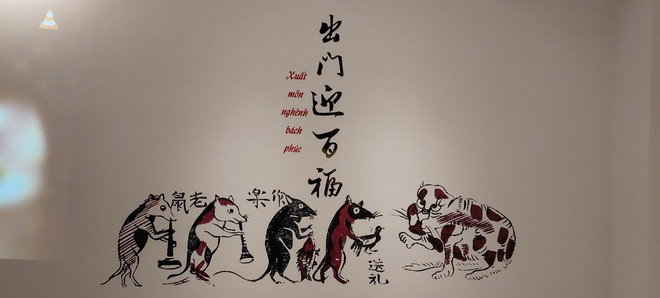 出門迎百福
Xuất
môn
nghênh
bách
phúc
老鼠
作楽
送礼